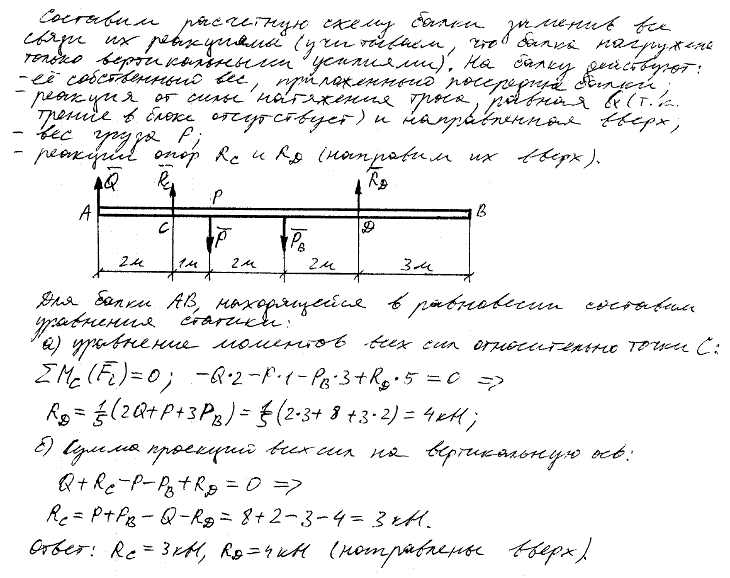 Составим расчетную схему балки заменив все
связи их реакциями (учитываем, что балка нагружена
только вертикальными усилиями). На балку действуют:
- её собственный вес, приложенный посередине балки;
- реакция от силы натяжения троса, равная Q (т.к.
трение в блоке отсутствует) и направленная вверх;
- вес груза P;
- реакции опор R_C и R_D (направим их вверх).
Q̅ R̅_C P R̅_D
A B
C P̅ P̅_B D
2м 1м 2м 2м 3м
Для балки AB, находящейся в равновесии составим
уравнения статики:
а) уравнение моментов всех сил относительно точки C:
∑M_C(F̅_i)=0; -Q·2-P·1-P_B·3+R_D·5=0 =>
R_D=1/5(2Q+P+3P_B)=1/5(2·3+8+3·2)=4кН;
б) Сумма проекций всех сил на вертикальную ось:
Q+R_C-P-P_B+R_D=0 =>
R_C=P+P_B-Q-R_D=8+2-3-4=3кН.
Ответ: R_C=3кН, R_D=4кН (направлены вверх).